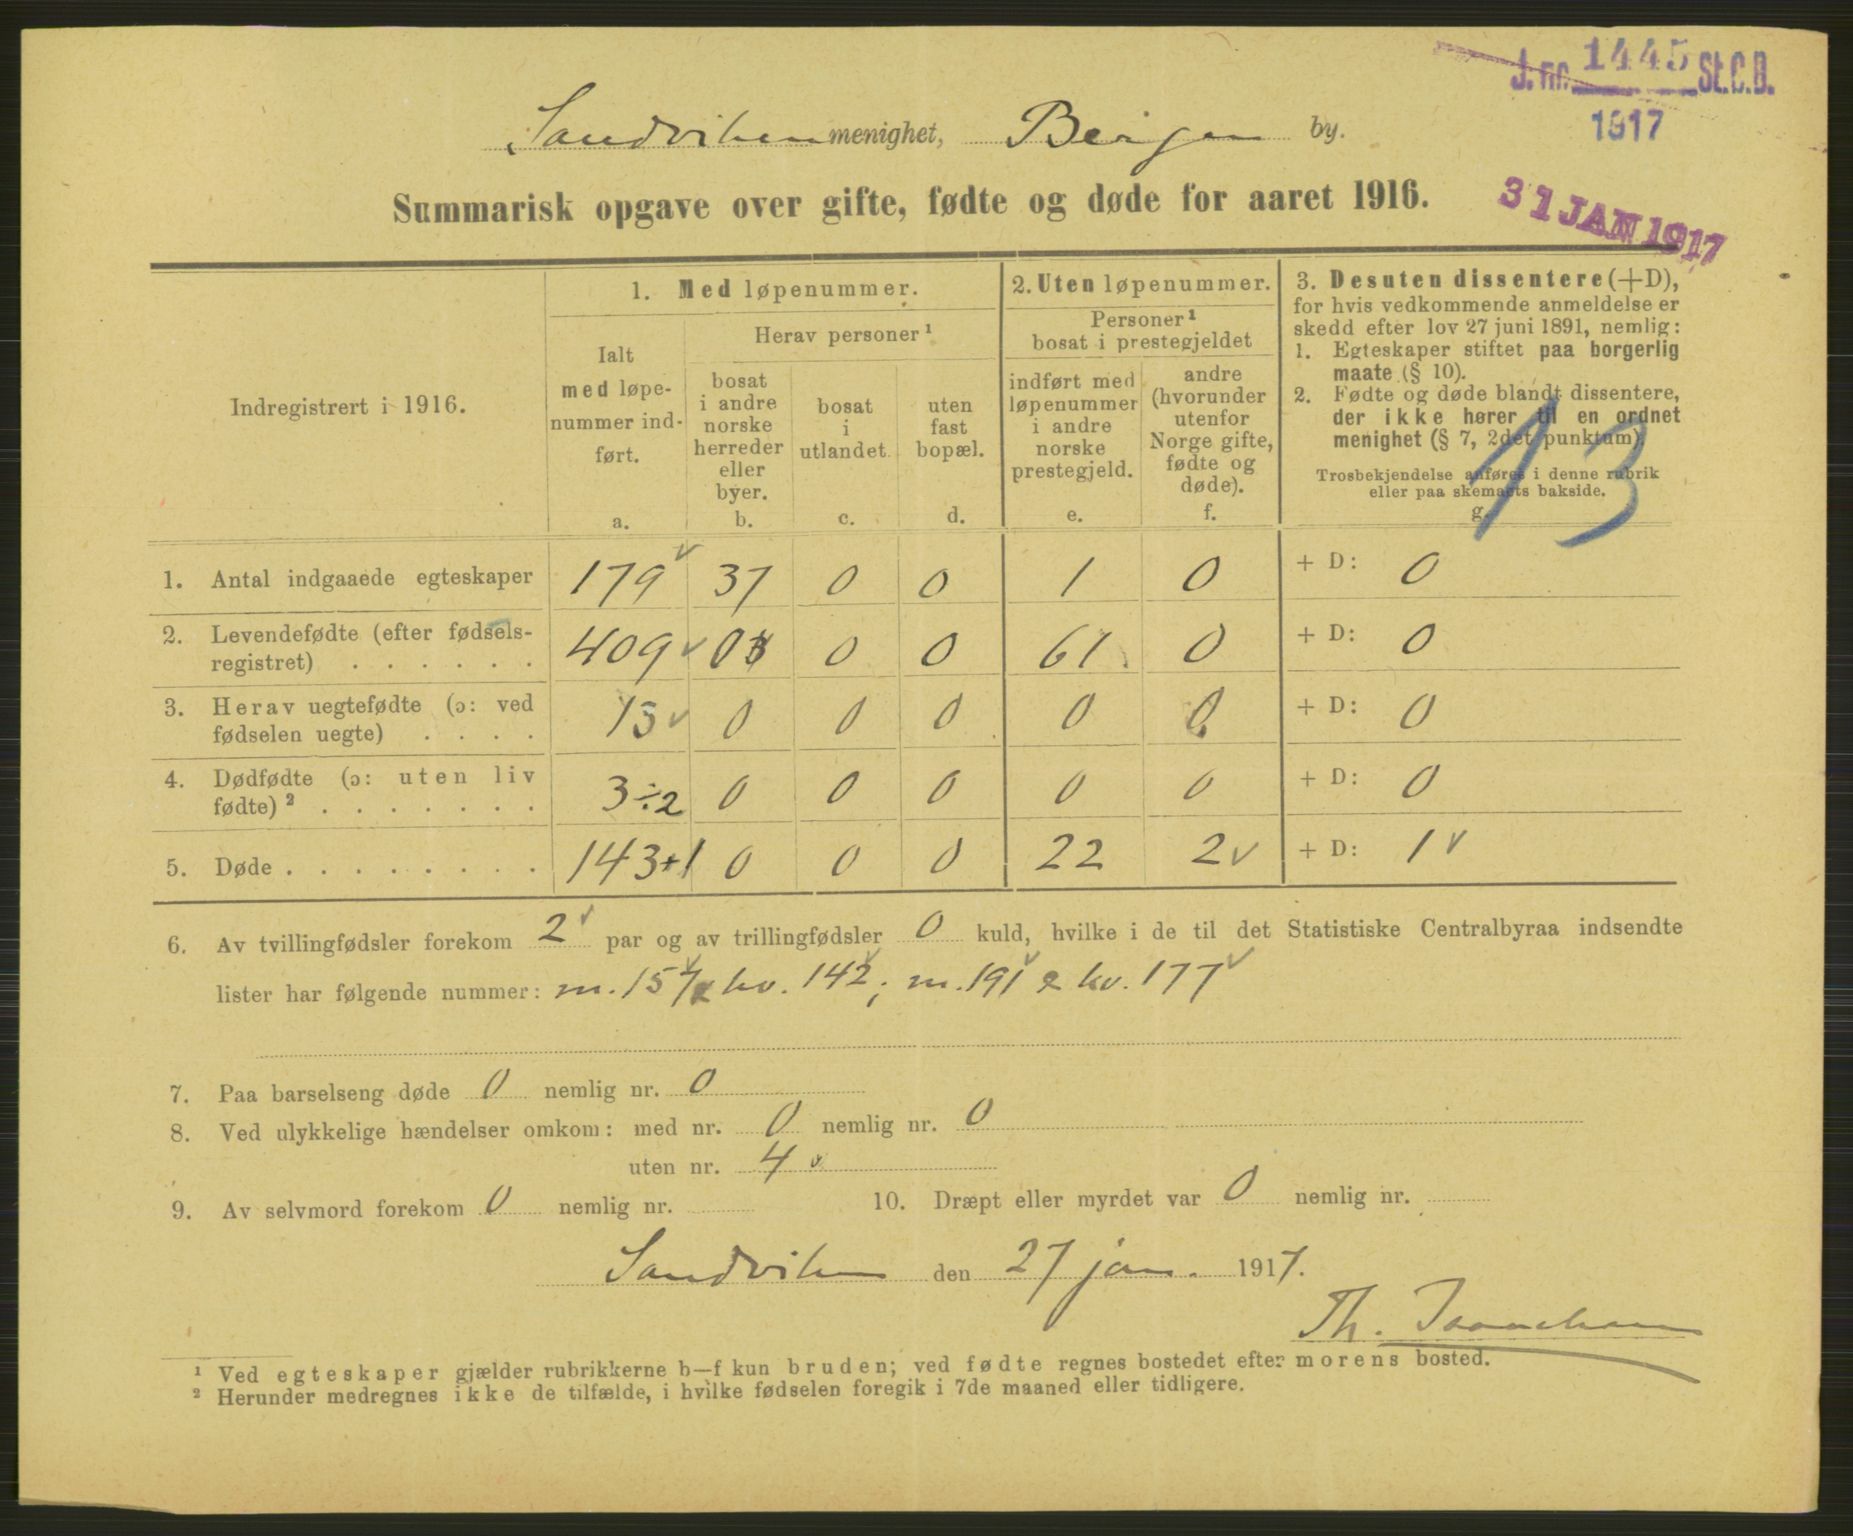 J. nr. 1445 St.C.B.
1917
Sandviken menighet, Bergen by.
Summarisk opgave over gifte, fødte og døde for aaret 1916.
31 JAN 1917
Indregistrert i 1916.
1. Med løpenummer.
Ialt
med løpe-
nummer ind-
ført.
a.
Herav personer ¹
bosat
i andre
norske
herreder
eller
byer.
b.
bosat
i
utlandet.
c.
uten
fast
bopæl.
d.
2. Uten løpenummer.
Personer ¹
bosat i prestegjeldet
indført med
løpenummer
i andre
norske
prestegjeld.
e.
andre
(hvorunder
utenfor
Norge gifte,
fødte og
døde).
f.
3. Desuten dissentere (+D),
for hvis vedkommende anmeldelse er
skedd efter lov 27 juni 1891, nemlig:
1. Egteskaper stiftet paa borgerlig
maate (§ 10).
2. Fødte og døde blandt dissentere,
der ikke hører til en ordnet
menighet (§ 7, 2det punktum).
Trosbekjendelse anføres i denne rubrik
eller paa skemaets bakside.
g.
13
1. Antal indgaaede egteskaper 179 37 0 0 1 0 + D: 0
2. Levendefødte (efter fødsels-
registret) . . . . . . 409 0 0 0 61 0 + D: 0
3. Herav uegtefødte (ɔ: ved
fødselen uegte) . . . . 13 0 0 0 0 0 + D: 0
4. Dødfødte (ɔ: uten liv
fødte) ² . . . . . . . 3÷2 0 0 0 0 0 + D: 0
5. Døde . . . . . . . . 143+1 0 0 0 22 2 + D: 1
6. Av tvillingfødsler forekom 2 par og av trillingfødsler 0 kuld, hvilke i de til det Statistiske Centralbyraa indsendte
lister har følgende nummer: m. 157 & kv. 142; m. 191 & kv. 177
7. Paa barselseng døde 0 nemlig nr. 0
8. Ved ulykkelige hændelser omkom: med nr. 0 nemlig nr. 0
uten nr. 4
9. Av selvmord forekom 0 nemlig nr.
10. Dræpt eller myrdet var 0 nemlig nr.
Sandviken den 27 jan. 1917.
Th.
¹ Ved egteskaper gjælder rubrikkerne b—f kun bruden; ved fødte regnes bostedet efter morens bosted.
² Herunder medregnes ikke de tilfælde, i hvilke fødselen foregik i 7de maaned eller tidligere.